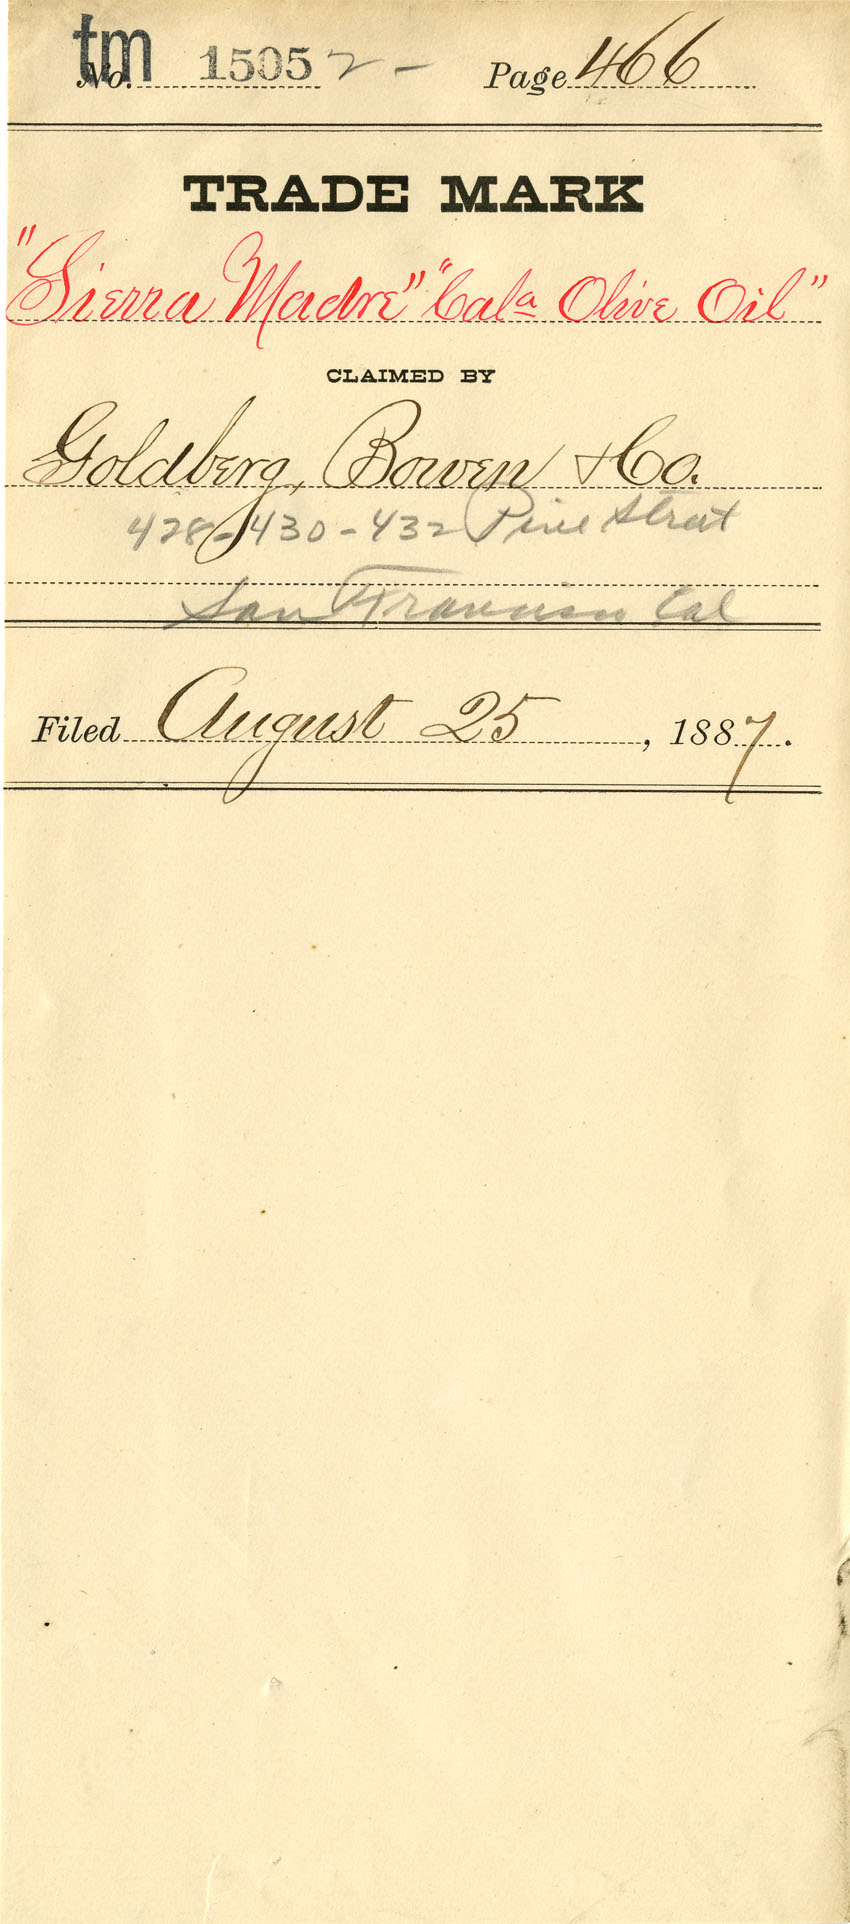 tm
No. 1505 2 - Page 466
TRADE MARK
"Sierra Madre" "Cala Olive Oil"
CLAIMED BY
Goldberg, Bowen & Co.
428-430-432 Pine Street
San Francisco Cal
Filed August 25, 1887.